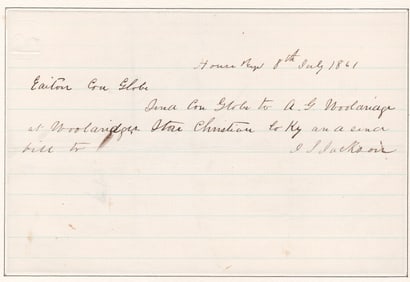 House Reps 8th July 1861
Editor Con Globe
Send Con Globe to A G Wooldridge
at Wooldridges Store Christian Co Ky and send
bill to J S Jackson